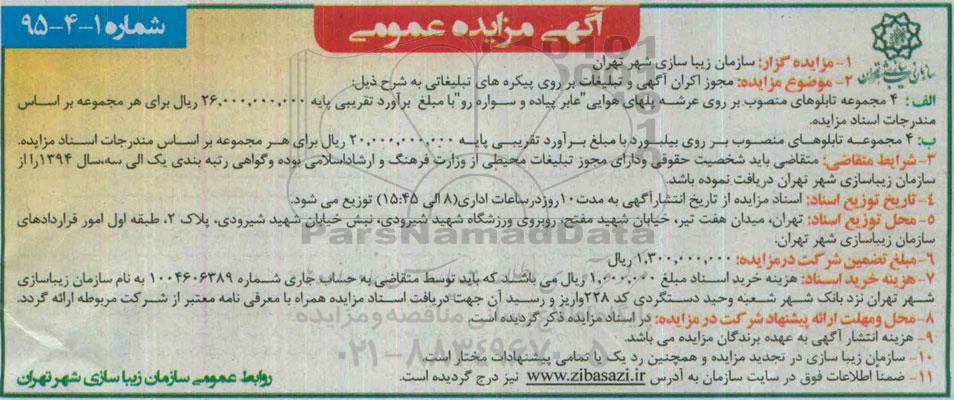 آگهی مزایده عمومی
شماره ۱-۴-۹۵
سازمان زیباسازی شهر تهران
۱- مزایده گزار: سازمان زیبا سازی شهر تهران
۲- موضوع مزایده: مجوز اکران آگهی و تبلیغات بر روی پیکره های تبلیغاتی به شرح ذیل:
الف: ۴ مجموعه تابلوهای منصوب بر روی عرشه پلهای هوایی"عابر پیاده و سواره رو"با مبلغ برآورد تقریبی پایه ۲۶,۰۰۰,۰۰۰,۰۰۰ ریال برای هر مجموعه بر اساس
مندرجات اسناد مزایده.
ب: ۴ مجموعه تابلوهای منصوب بر روی بیلبورد با مبلغ برآورد تقریبی پایه ۲۰,۰۰۰,۰۰۰,۰۰۰ ریال برای هر مجموعه بر اساس مندرجات اسناد مزایده.
۳- شرایط متقاضی: متقاضی باید شخصیت حقوقی ودارای مجوز تبلیغات محیطی از وزارت فرهنگ و ارشاداسلامی بوده وگواهی رتبه بندی یک الی سه،سال ۱۳۹۴را از
سازمان زیباسازی شهر تهران دریافت نموده باشد.
۴- تاریخ توزیع اسناد: اسناد مزایده از تاریخ انتشارآگهی به مدت۱۰روزدرساعات اداری(۸ الی ۱۵:۴۵) توزیع می شود.
۵- محل توزیع اسناد: تهران، میدان هفت تیر، خیابان شهید مفتح، روبروی ورزشگاه شهید شیرودی، نبش خیابان شهید شیرودی، پلاک ۲، طبقه اول امور قراردادهای
سازمان زیباسازی شهر تهران.
۶- مبلغ تضمین شرکت درمزایده: ۱,۳۰۰,۰۰۰,۰۰۰ ریال
۷- هزینه خرید اسناد: هزینه خرید اسناد مبلغ ۱,۰۰۰,۰۰۰ ریال می باشد که باید توسط متقاضی به حساب جاری شماره ۱۰۰۴۶۰۶۳۸۹ به نام سازمان زیباسازی
شهر تهران نزد بانک شهر شعبه وحید دستگردی کد ۲۲۸واریز و رسید آن جهت دریافت اسناد مزایده همراه با معرفی نامه معتبر از شرکت مربوطه ارائه گردد.
۸- محل ومهلت ارائه پیشنهاد شرکت در مزایده: در اسناد مزایده ذکر گردیده است.
۹- هزینه انتشار آگهی به عهده برندگان مزایده می باشد.
۱۰- سازمان زیبا سازی در تجدید مزایده و همچنین رد یک یا تمامی پیشنهادات مختار است.
۱۱- ضمنا اطلاعات فوق در سایت سازمان به آدرس www.zibasazi.ir نیز درج گردیده است.
روابط عمومی سازمان زیبا سازی شهر تهران
ParsNamadData
۰۲۱-۸۸۳۴۹۶۷۰